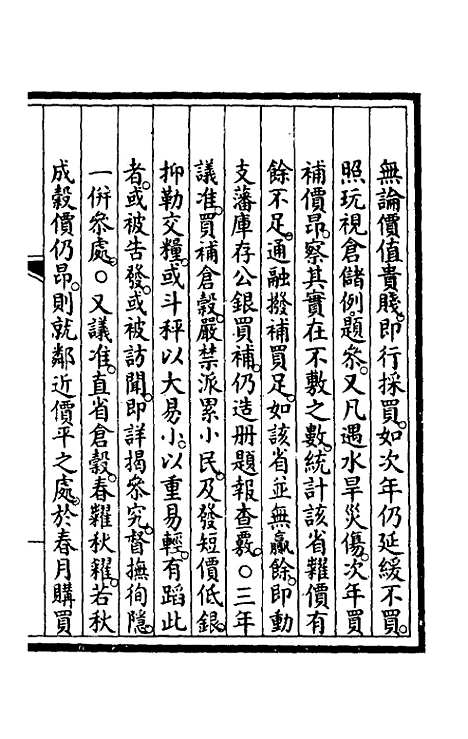 無論價值貴賤。即行採買。如次年仍延緩不買。
照玩視倉儲例。題參。又凡遇水旱災傷。次年買
補價昂。察其實在不敷之數。統計該省糶價有
餘不足。通融撥補買足。如該省並無贏餘。即動
支藩庫存公銀買補。仍造册題報查覈。〇三年
議准。買補倉穀。嚴禁派累小民。及發短價低銀。
抑勒交糧。或斗秤以大易小。以重易輕。有蹈此
者。或被告發。或被訪聞。即詳揭參究。督撫徇隱。
一併參處。〇又議准。直省倉穀。春糶秋糴。若秋
成穀價仍昂。則就鄰近價平之處。於春月購買